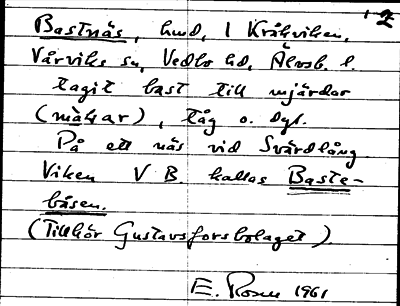 2
Bastnäs, hmd, i Kråkviken,
Vårviks sn, Vedbo hd, Älvsb. l.
tagit bast till mjärdar
(mäkar), tåg o. dyl.
På ett näs vid Svärdlång
Viken V B. kallas Baste-
båsen.
(Tillhör Gustavsforsbolaget)
E. Rosen 1961